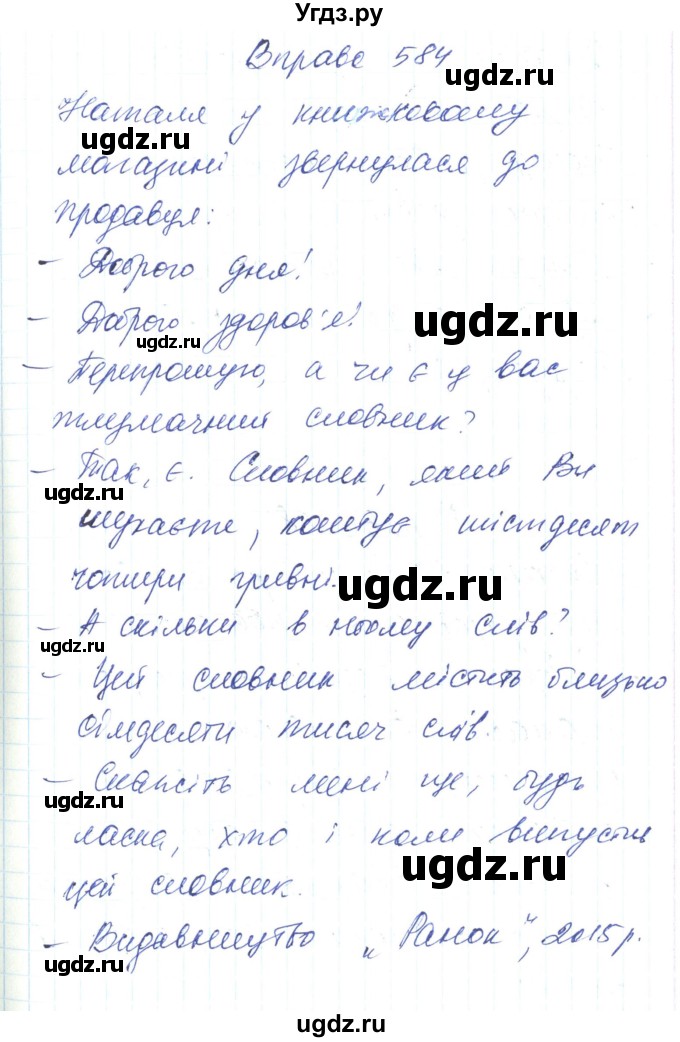 Угдз.ру
Вправа 584
ugdz.ru
Наталя у книжковому
ugdz.ru
магазині звернулася до
продавця:
- Доброго дня!
ugdz.ru
- Доброго здоров'я!
ugdz.ru
- Перепрошую, а чи є у вас
тлумачний словник?
- Так, є. Словник, який Ви
ugdz.ru
шукаєте, коштує шістдесят
чотири гривні.
ugdz.ru
- А скільки в ньому слів?
ugdz.ru
- Цей словник містить близько
сімдесяти тисяч слів.
- Скажіть мені ще, будь
ugdz.ru
ласка, хто і коли випустив
цей словник.
ugdz.ru
- Видавництво „Ранок", 2015р.
ugdz.ru
ugdz.ru